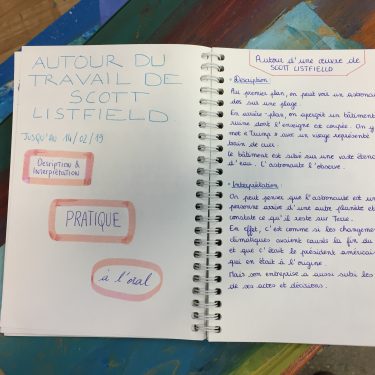 AUTOUR DU
TRAVAIL DE
SCOTT
LISTFIELD
JUSQU'AU 14/02/19
Description &
Interprétation
PRATIQUE
à l'oral
Autour d'une œuvre de
SCOTT LISTFIELD
Description:
Au premier plan, on peut voir un astronaute
dos sur une plage
En arrière-plan, on aperçoit un bâtiment
ruine dont l'enseigne est coupée. On y
met « Trump » avec un visage représenté
bain de cuir.
Le bâtiment est situé sur une vaste étendue
d'eau. L'astronaute l'observe.
Interprétation:
On peut penser que l'astronaute est un
personne arrive d'une autre planète et
constate ce qu'il reste sur Terre.
En effet, c'est comme si les changements
climatiques avaient causés la fin du
et que c'était le président américain
qui en était à l'origine.
Mais son entreprise a aussi subi les
de ses actes et décisions.